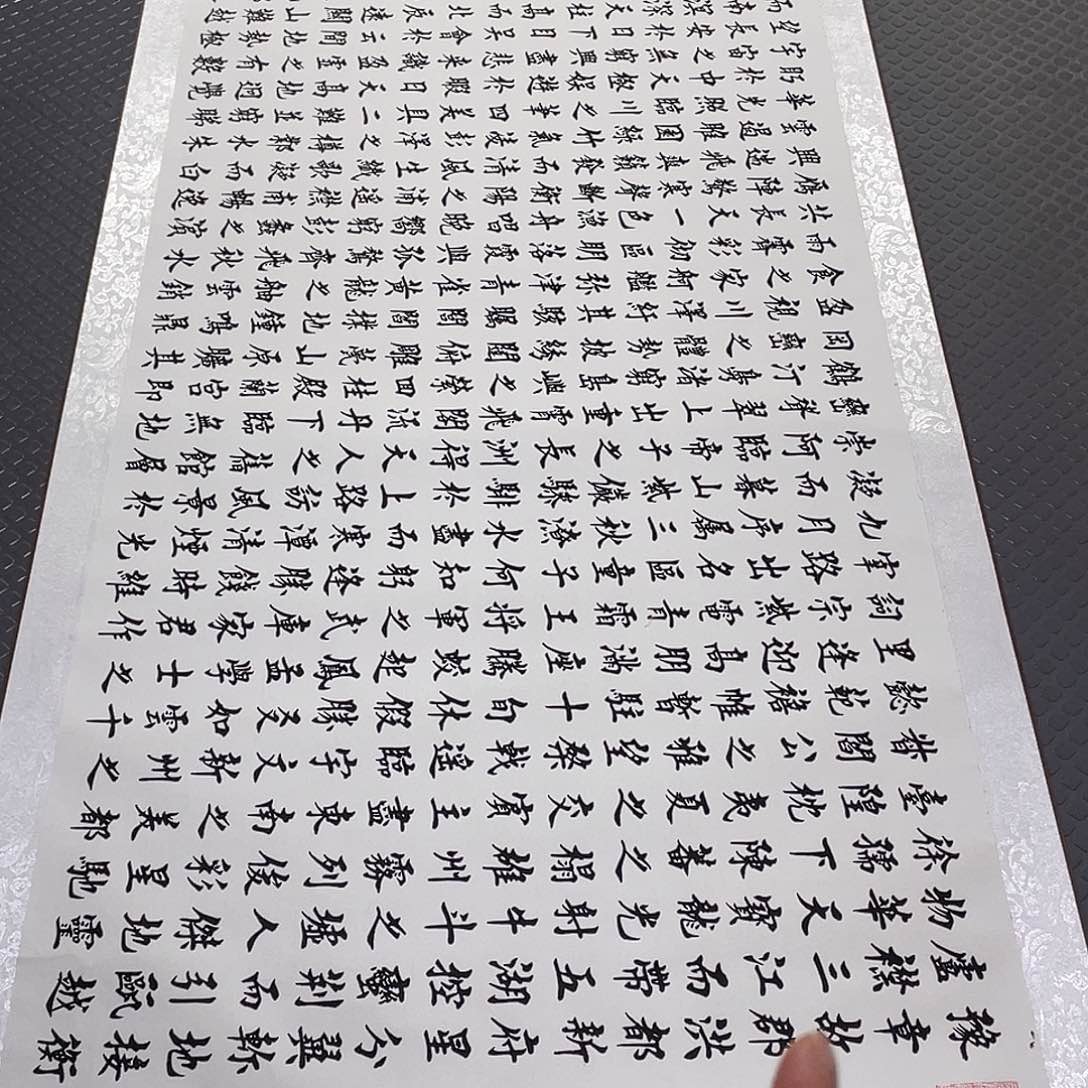 豫章故郡洪都新府星分翼軫地接衡
廬襟三江而帶五湖控蠻荊而引甌越
物華天寶龍光射牛斗之墟人傑地靈
徐孺下陳蕃之榻雄州霧列俊彩星馳
臺隍枕夷夏之交賓主盡東南之美都
督閻公之雅望棨戟遙臨宇文新州之
懿範襜帷暫駐十旬休假勝友如雲千
里逢迎高朋滿座騰蛟起鳳孟學士之
詞宗紫電青霜王將軍之武庫家君作
宰路出名區童子何知躬逢勝餞時維
九月序屬三秋潦水盡而寒潭清煙光
凝而暮山紫儼驂騑於上路訪風景於
崇阿臨帝子之長洲得天人之舊館層
巒聳翠上出重霄飛閣流丹下臨無地
鶴汀鳧渚窮島嶼之縈回桂殿蘭宮即
岡巒之體勢披繡闥俯雕甍山原曠其
盈視川澤紆其駭矚閭閻撲地鐘鳴鼎
食之家舸艦彌津青雀黃龍之舳雲銷
雨霽彩徹區明落霞與孤鶩齊飛秋水
共長天一色漁舟唱晚響窮彭蠡之濱
雁陣驚寒聲斷衡陽之浦遙襟甫暢逸
興遄飛爽籟發而清風生纖歌凝而白
雲遏睢園綠竹氣凌彭澤之樽鄴水朱
華光照臨川之筆四美具二難並窮睇
眄於中天極娛遊於暇日天高地迥覺
宇宙之無窮興盡悲來識盈虛之有數
望長安於日下目吳會於雲間地勢極
而南溟深天柱高而北辰遠關山難越